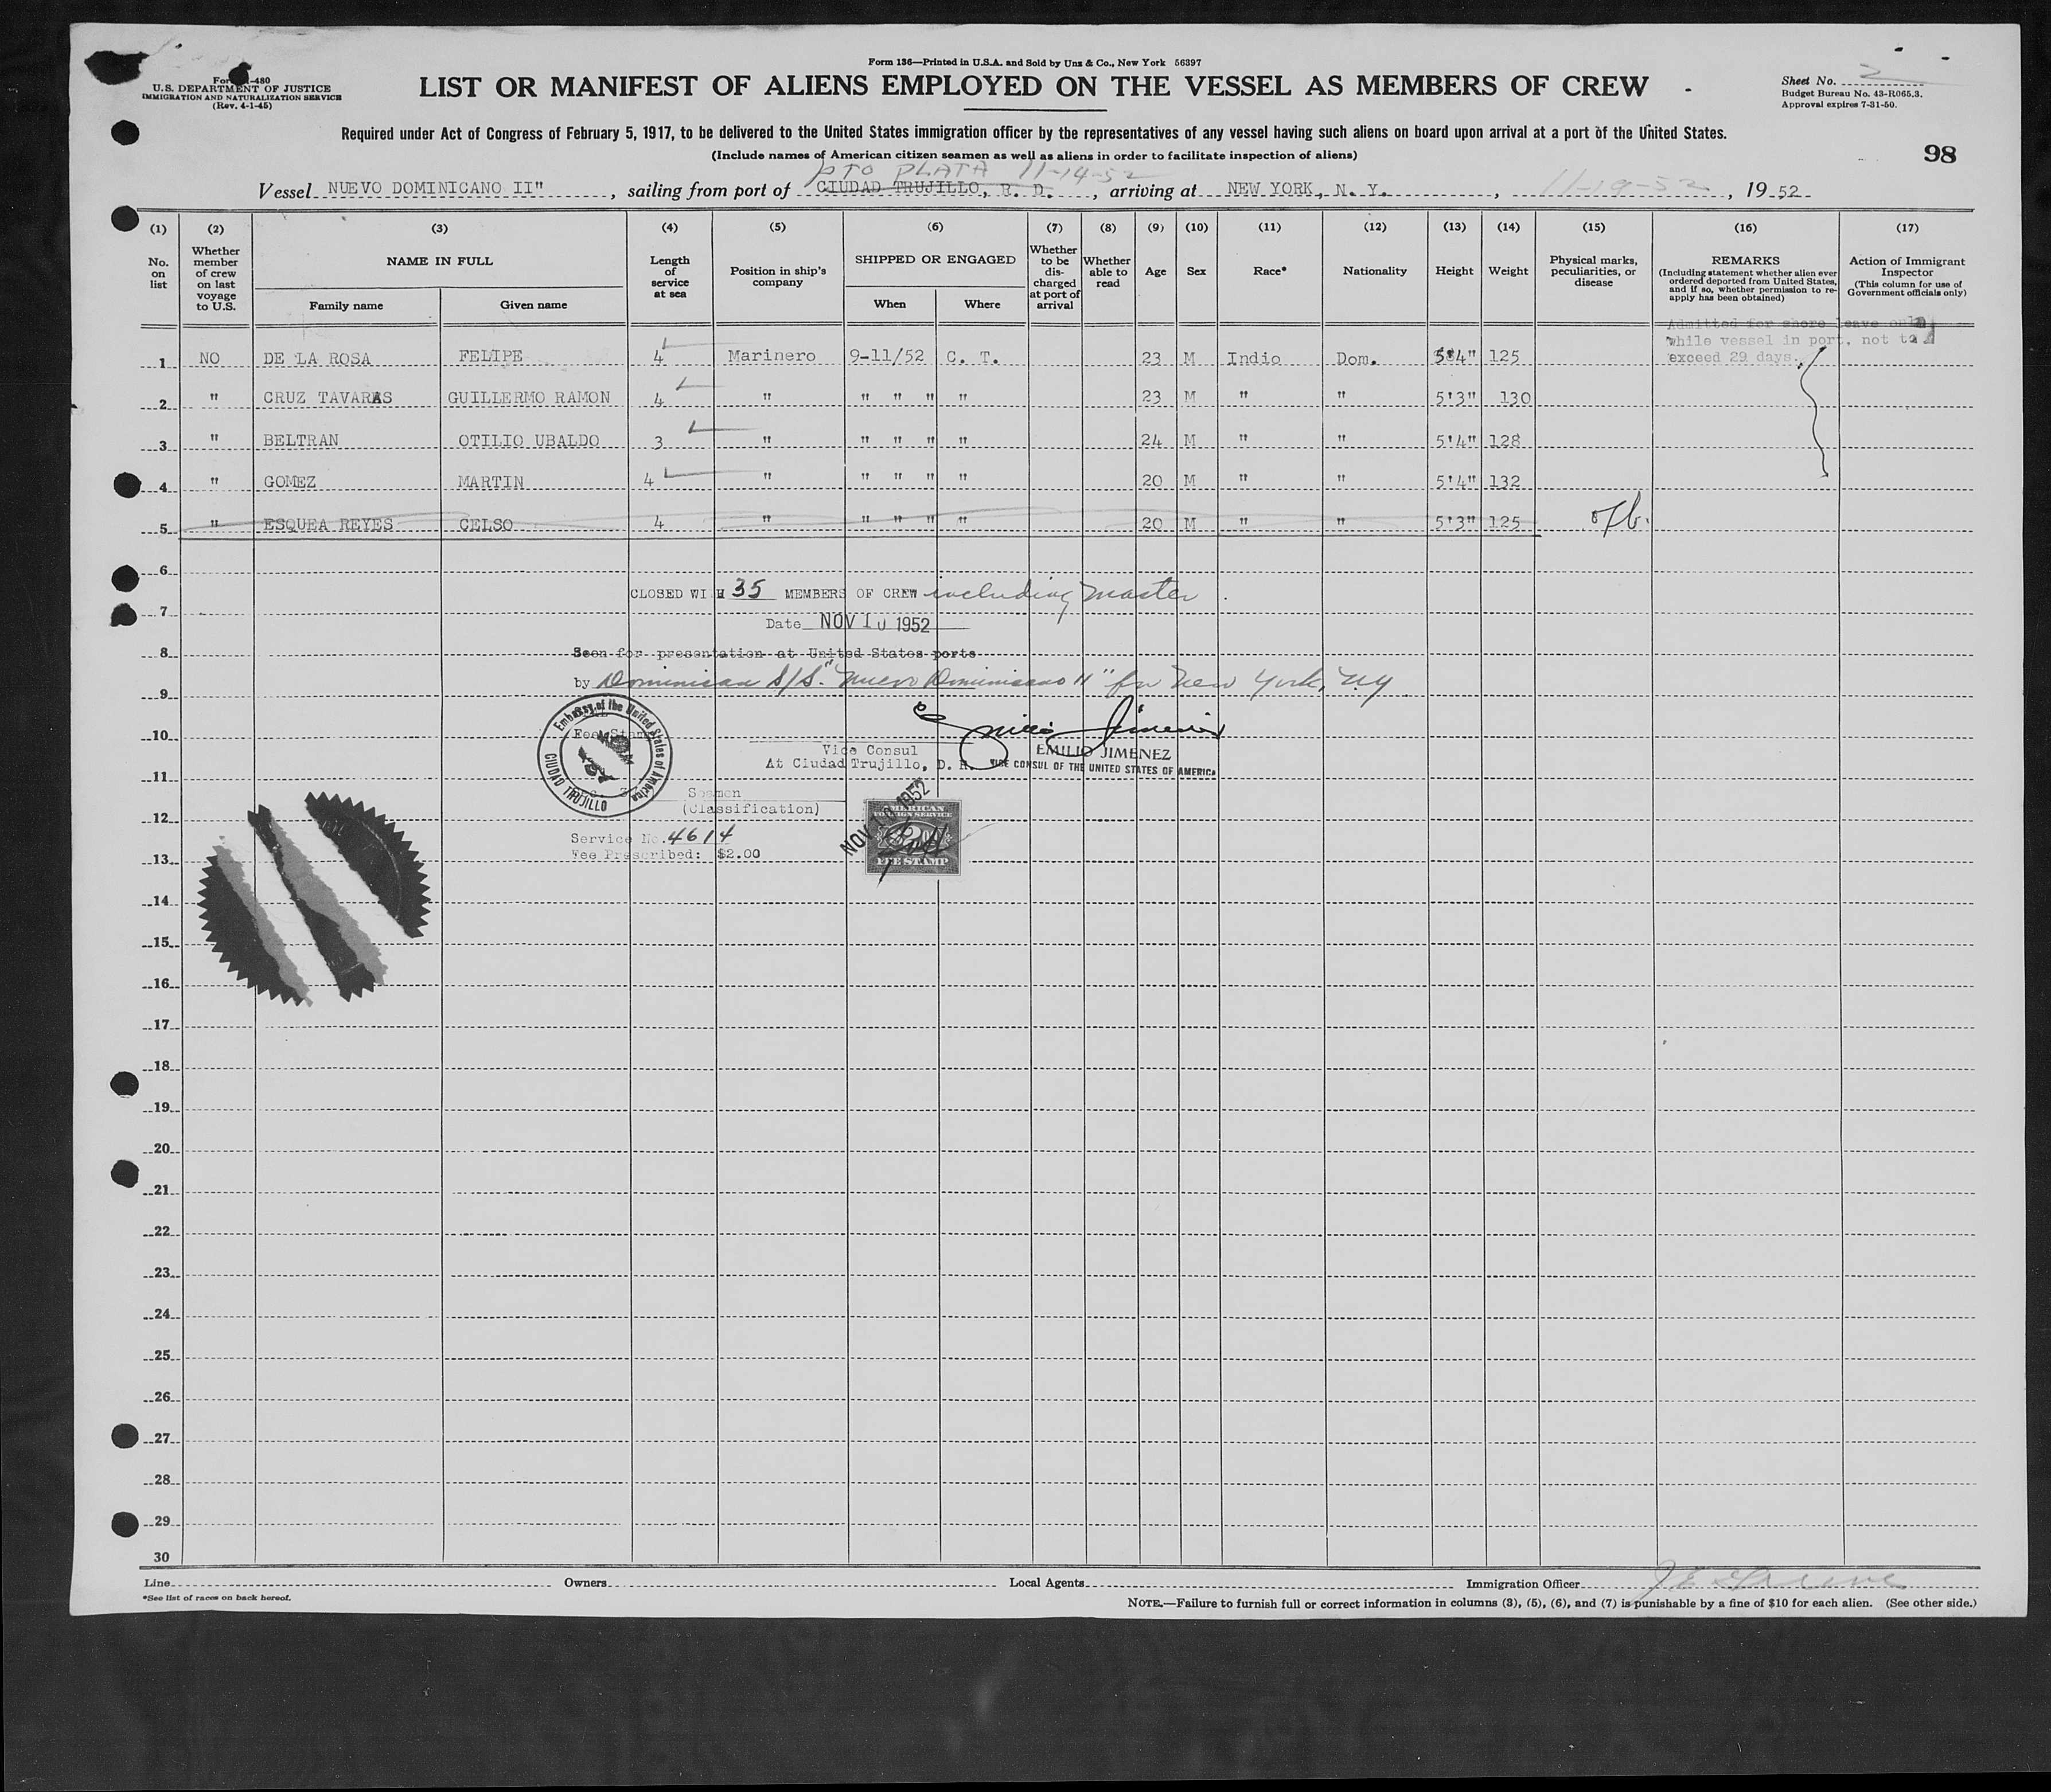 Form 136—Printed in U.S.A. and Sold by Unz & Co., New York 56397
-480
U.S. DEPARTMENT OF JUSTICE
IMMIGRATION AND NATURALIZATION SERVICE
(Rev. 4-1-45)
LIST OR MANIFEST OF ALIENS EMPLOYED ON THE VESSEL AS MEMBERS OF CREW
Sheet No. 2
Budget Bureau No. 43-R065.3.
Approval expires 7-31-50.
Required under Act of Congress of February 5, 1917, to be delivered to the United States immigration officer by the representatives of any vessel having such aliens on board upon arrival at a port of the United States.
(Include names of American citizen seamen as well as aliens in order to facilitate inspection of aliens)
98
PTO PLATA 11-14-52
Vessel NUEVO DOMINICANO II", sailing from port of CIUDAD TRUJILLO, R. D., arriving at NEW YORK, N. Y., 11-19-52, 1952
(1) (2) (3) (4) (5) (6) (7) (8) (9) (10) (11) (12) (13) (14) (15) (16) (17)
No. on list
Whether member of crew on last voyage to U.S.
NAME IN FULL
Family name
Given name
Length of service at sea
Position in ship's company
SHIPPED OR ENGAGED
When
Where
Whether to be discharged at port of arrival
Whether able to read
Age
Sex
Race*
Nationality
Height
Weight
Physical marks, peculiarities, or disease
REMARKS
(Including statement whether alien ever ordered deported from United States, and if so, whether permission to reapply has been obtained)
Action of Immigrant Inspector
(This column for use of Government officials only)
Admitted for shore leave only
while vessel in port, not to
exceed 29 days.
1 NO DE LA ROSA FELIPE 4 Marinero 9-11/52 C. T. 23 M Indio Dom. 5'4" 125
2 " CRUZ TAVARAS GUILLERMO RAMON 4 " " " " " 23 M " " 5'3" 130
3 " BELTRAN OTILIO UBALDO 3 " " " " " 24 M " " 5'4" 128
4 " GOMEZ MARTIN 4 " " " " " 20 M " " 5'4" 132
5 " ESQUEA REYES CELSO 4 " " " " " 20 M " " 5'3" 125
6
CLOSED WITH 35 MEMBERS OF CREW including Master
7
Date NOV 10 1952
8
Seen for presentation at United States ports
by Dominican S/S. "Nuevo Dominicano II" for New York, N.Y.
9
Embassy of the United States of America
CIUDAD TRUJILLO
Fee Stamp
10
Vice Consul
EMILIO JIMENEZ
At Ciudad Trujillo, D. R.
VICE CONSUL OF THE UNITED STATES OF AMERICA
11
Seamen
(Classification)
NOV 10 1952
AMERICAN
FOREIGN SERVICE
FEE STAMP
12
Service No. 4614
Fee Prescribed: $2.00
13
14
15
16
17
18
19
20
21
22
23
24
25
26
27
28
29
30
Line
Owners
Local Agents
Immigration Officer
*See list of races on back hereof.
NOTE.—Failure to furnish full or correct information in columns (3), (5), (6), and (7) is punishable by a fine of $10 for each alien. (See other side.)